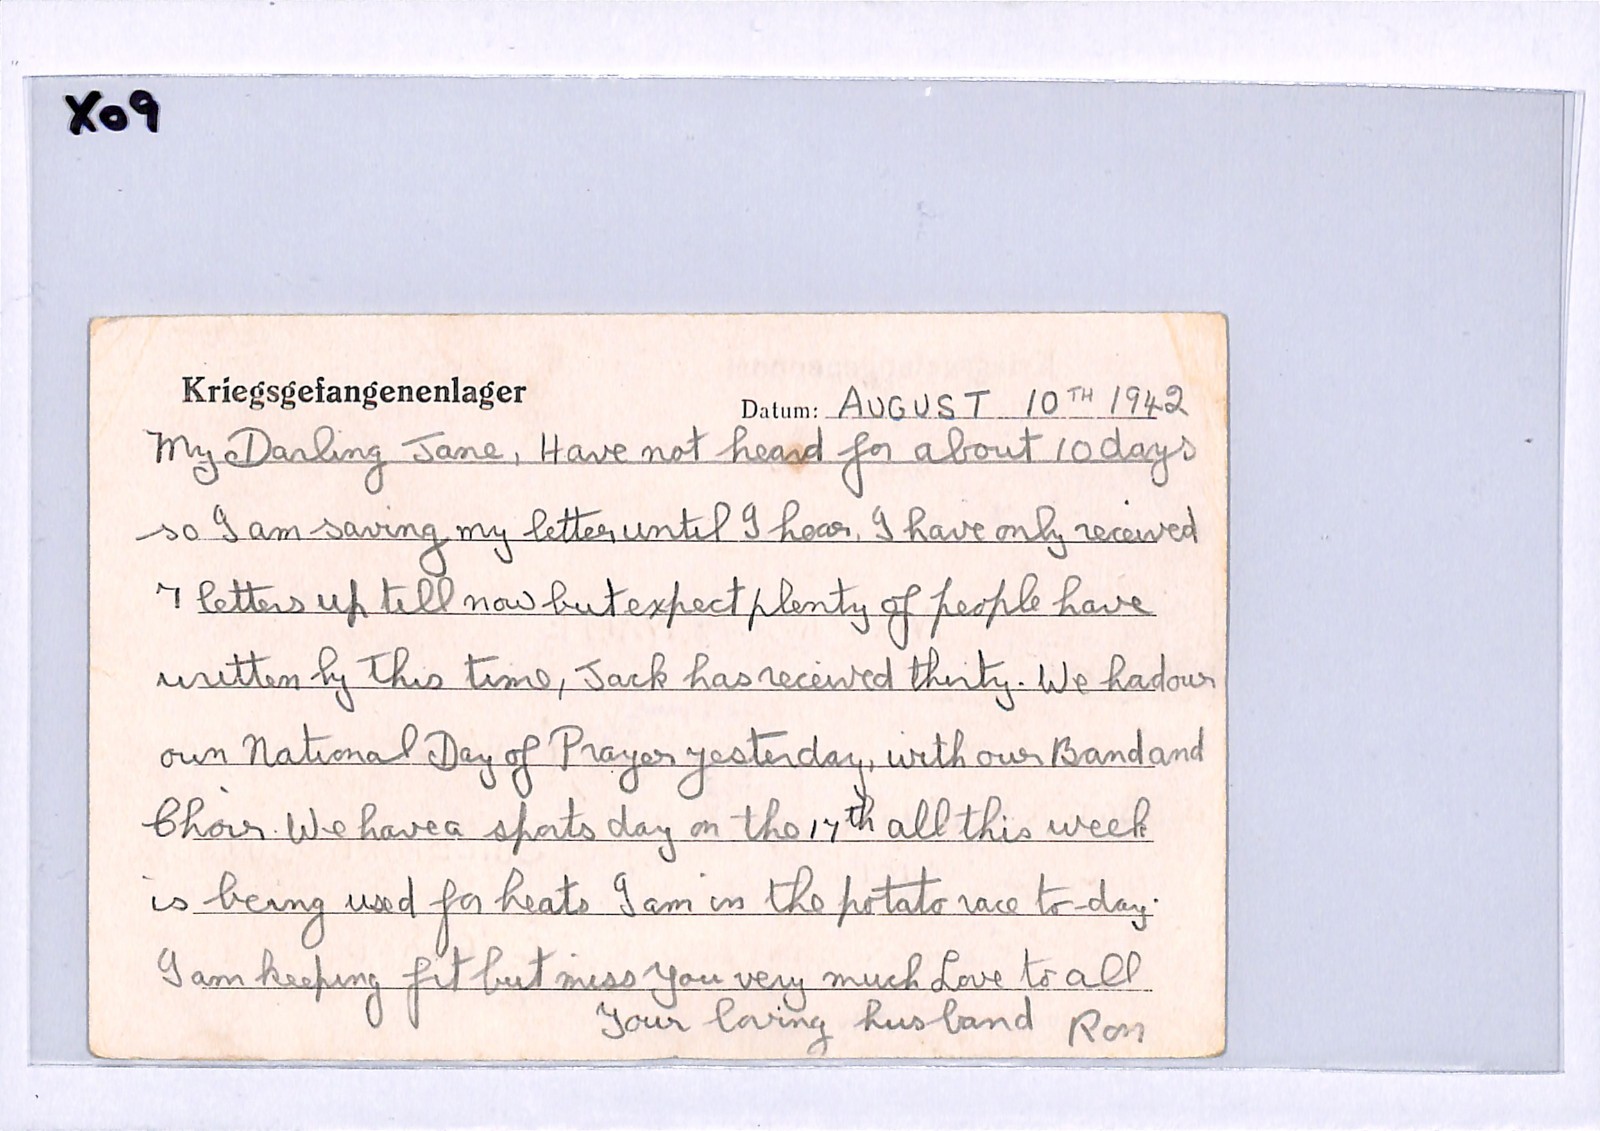 X09
Kriegsgefangenenlager
Datum: AUGUST 10TH 1942
My Darling Jane, Have not heard for about 10 days
so I am saving my letter until I hear. I have only received
7 letters up till now but expect plenty of people have
written by this time, Jack has received thirty. We had our
own National Day of Prayer yesterday, with our Band and
Choir. We have a sports day on the 17th all this week
is being used for heats I am in the potato race to-day.
I am keeping fit but miss you very much Love to all
Your loving husband Ron